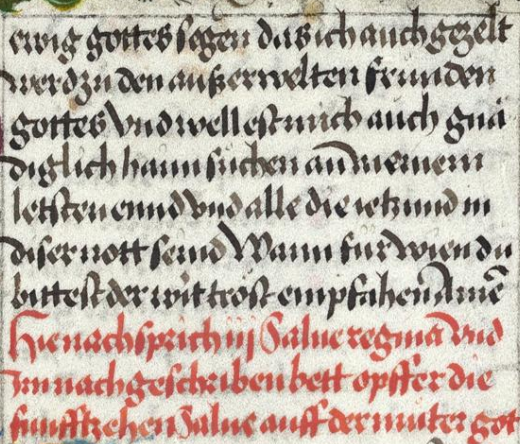 ewig gottes segen das ich auch gezelt
werd zu den außerwelten frunden
gottes Vnd wellest mich auch gnä
diglich haim suchen an meinem
letsten ennd vnd alle die ietzund in
diser nott seind Wann für wien du
bittest der wirt trost empfahen Amē
Hie nach sprich iij Salue regina Vnd
im nachgeschriben bett opffer die
funfftzehen Salue auff der muter got